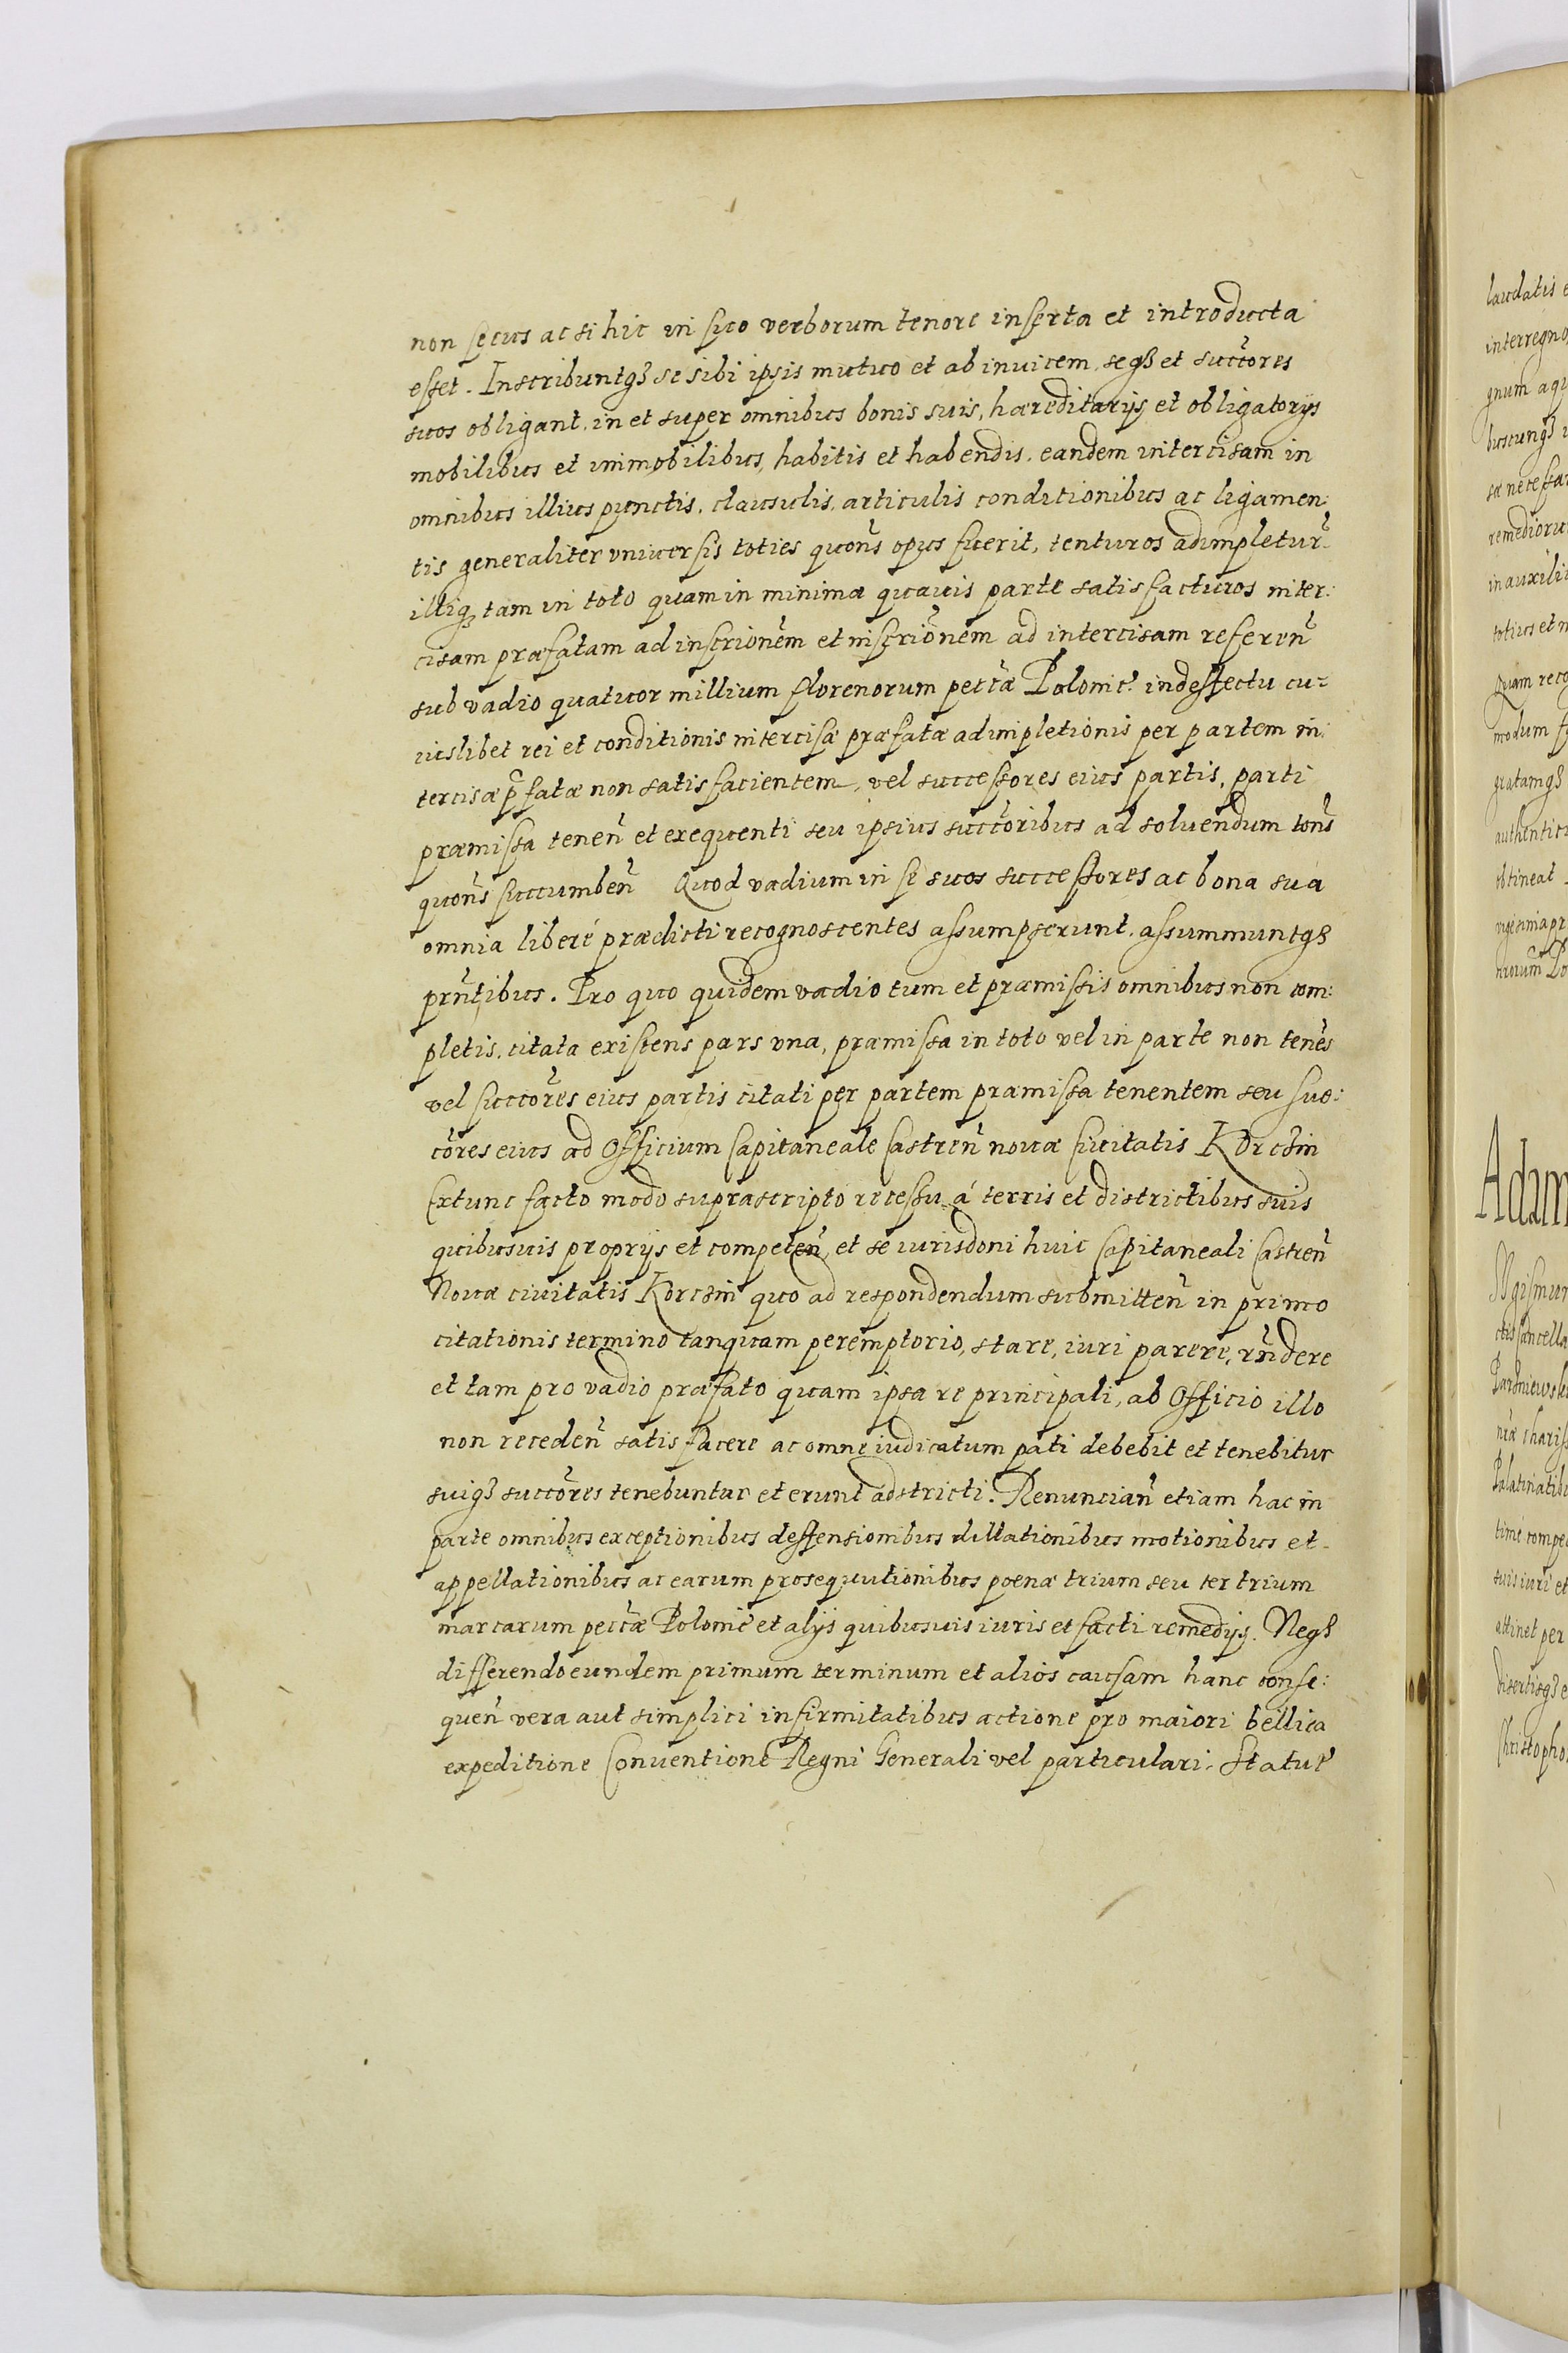 non secus ac si hic in suo verborum tenore inserta et introducta
esset. Inscribuntq3 se sibi ipsis mutuo et ab inuicem seq3 et succ̃ores
suos obligant, in et super omnibus bonis suis, hæreditarijs et obligatorijs
mobilibus et immobilibus, habitis et habendis, eandem intercisam in
omnibus illius punctis, clausulis, articulis conditionibus ac ligamen:
tis generaliter vniuersis toties quoñs opus fuerit, tenturos adimpletur̃
illiq3 tam in toto quam in minima quauis parte satisfacturos inter:
cisam præfatam ad inscrioñem et inscrioñem ad intercisam refereñ
sub vadio quatuor millium florenorum pecc̃æ Polonic̃ in deffectu cu=
iuslibet rei et conditionis intercisæ præfatæ adimpletionis per partem in:
tercisæ p̃fatæ non satisfacientem, vel successores eius partis, parti
præmissa teneñ et exequenti seu ipsius succ̃oribus ad soluendum toñs
quoñs succumbeñ Quod vadium in se suos successores ac bona sua
omnia liberé prædicti recognoscentes assumpserunt, assummuntq3
prñtibus. Pro quo quidem vadio tum et præmissis omnibus non com:
pletis, citata existens pars vna, præmissa in toto vel in parte non teneñs
vel succ̃ores eius partis citati per partem præmissa tenentem seu suc:
c̃ores eius ad Officium Capitaneale Castreñ nouæ Ciuitatis Korczin
Extunc facto modo suprascripto recessu á terris et districtibus suis
quibusuis proprijs et competeñ, et se iurisdoni huic Capitaneali Castreñ
Nouæ ciuitatis Korczin quo ad respondendum submitteñ in primo
citationis termino tanquam peremptorio, stare, iuri parere, rñdere
et tam pro vadio præfato quam ipsa re principali, ab Officio illo
non recedeñ satisfacere ac omne iudicatum pati debebit et tenebitur
suiq3 succ̃ores tenebuntur et erunt adstricti. Renunciañ etiam hac in
parte omnibus exceptionibus deffensionibus dillationibus motionibus et
appellationibus ac earum prosequutionibus poenæ trium seu ter trium
marcarum pecc̃æ Polonic̃ et alijs quibusuis iuris et facti remedijs. Neq3
differendo eundem primum terminum et alios causam hanc conse:
queñ vera aut simplici infirmitatibus actione pro maiori bellica
expeditione Conuentione Regni Generali vel particulari. Statut̃
laudatis
interregno
gnum
remedioru
in auxili
totius et
Quam reco
modum
gratamq3
authentic
obtineat
Adam